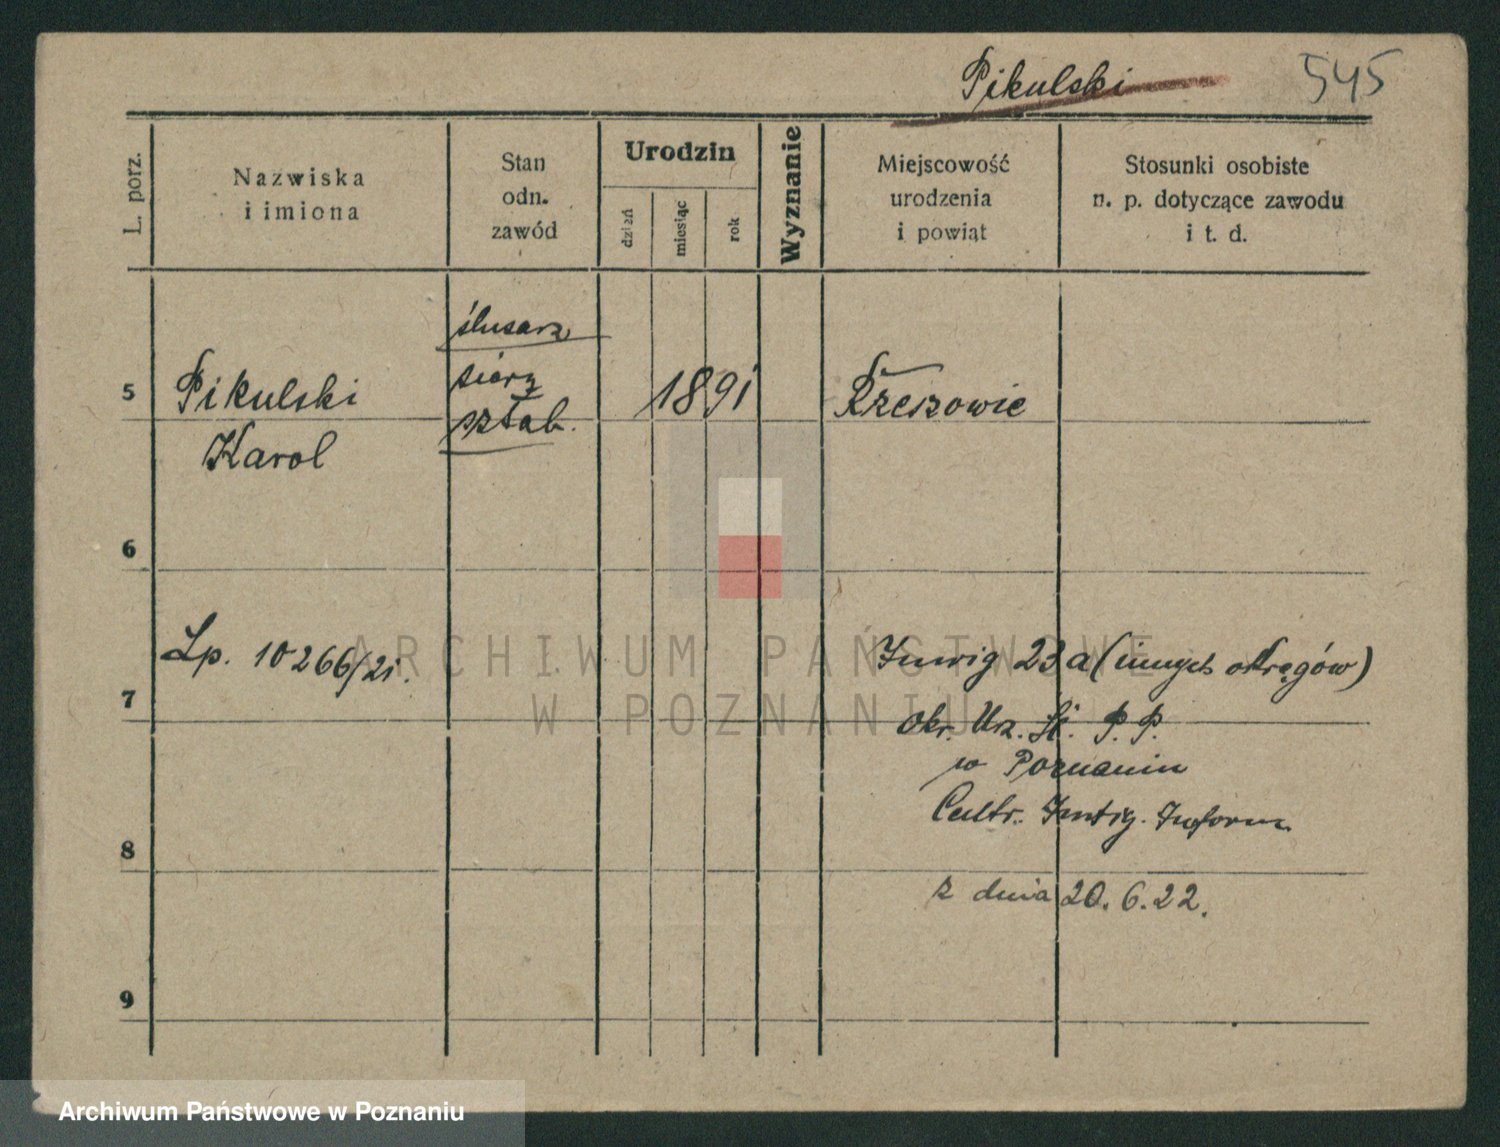 Pikulski 545
L. porz.
Nazwiska
i imiona
Stan
odn.
zawód
Urodzin
dzień
miesiąc
rok
Wyznanie
Miejscowość
urodzenia
i powiąt
Stosunki osobiste
n. p. dotyczące zawodu
i t. d.
ślusarz
sierż
sztab.
5 Pikulski 1891 Rzeszowie
Karol
6
Lp. 10266/21. Inwig 23a (innych okręgów)
7
Okr. Urz. Śl. P. P.
w Poznaniu
Centr. Inwig. Inform.
8
z dnia 20.6.22.
9
ARCHIWUM PAŃSTWOWE
W POZNANIU
Archiwum Państwowe w Poznaniu